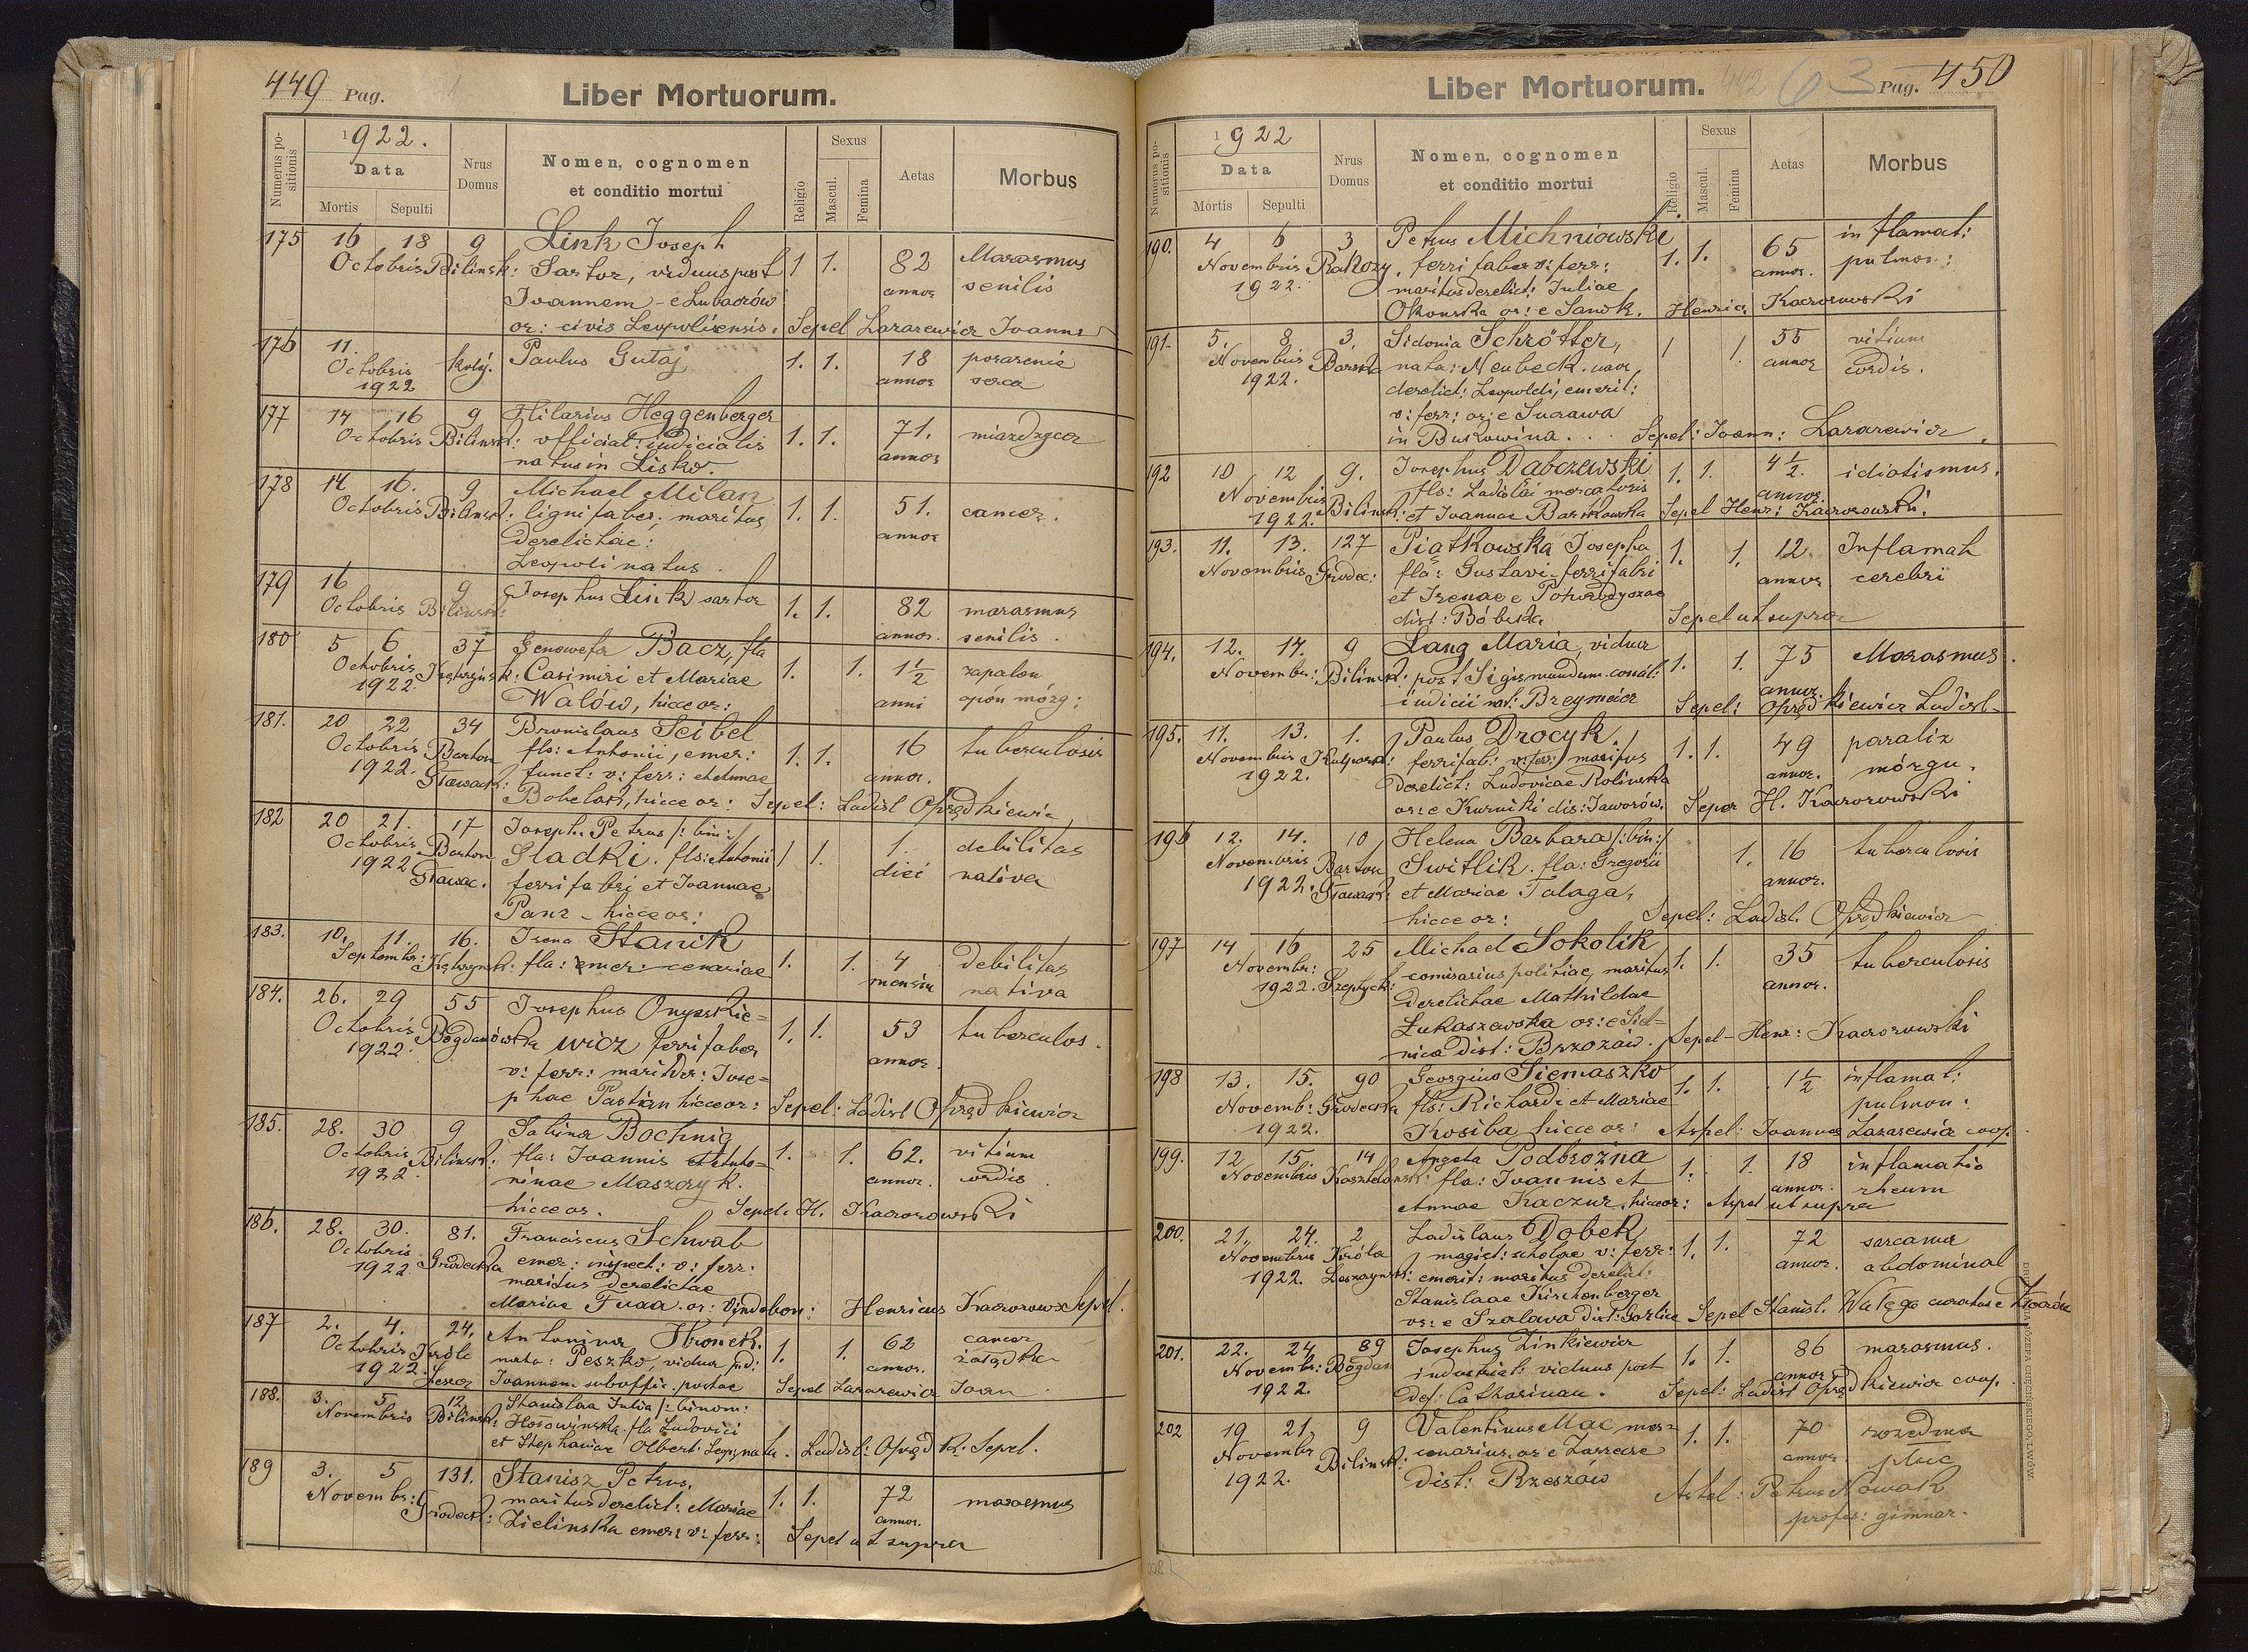 449 Pag. Liber Mortuorum.
Numerus positionis
1922.
Data
Mortis Sepulti
Nrus Domus
Nomen, cognomen
et conditio mortui
Religio
Sexus
Mascul. Femina
Aetas
Morbus
175 16 18 9 Link Joseph
Octobris Bilinsk: Sartor, viduus post 1 1. 82 Marasmus
Joannem - e Lubaczów annor senilis
or: civis Leopoliensis. Sepel Lazarewicz Joannes
176 11. Paulus Gutaj 1. 1. 18 porażenie
Octobris kolej. annor serca
1922
177 14 16 9 Hilarius Heggenberger
Octobris Bilinsk: official: iudicialis 1. 1. 71. miażdżyca
natus in Lisko. annor
178 14 16. 9 Michael Milan
Octobris Bilinsk: ligni faber, maritus 1. 1. 51. cancer.
derelictae: annor
Leopoli natus.
179 16 9 Josephus Link sartor 1. 1. 82 marasmus
Octobris Bilinsk: annor. senilis.
180 5 6 37 Genowefa Bacz, fla
Octobris Kętrzyńsk: Casimiri et Mariae 1. 1. 1½ zapalen
1922. Walów, hicce or: anni opón mózg:
181. 20 22 34 Bronislaus Seibel
Octobris Barton fls: Antonii, emer: 1. 1. 16 tuberculosis
1922. Gławack: funct: v: ferr: et Annae annor.
Bobelak, hicce or: Sepel: Ladisl Oprędkiewicz
182 20 21. 17 Joseph. Petrus /:bin:/
Octobris Barton Sladki. fls: Antonii 1 1. 1. debilitas
1922 Gławac. ferrifabri et Joannae diei nativa
Panz - hicce or:
183. 10. 11. 16. Irena Stanik
Septembr: Kętrzynsk: fla: emer: cenariae 1. 1. 4 debilitas
mensiu nativa
184. 26. 29 55 Josephus Onyszkie=
Octobris Bogdanówka wicz ferrifaber 1. 1. 53 tuberculos.
1922. v: ferr: marit der: Jose= annor.
phae Pastian hicce or: Sepel: Ladisl Oprędkiewicz
185. 28. 30 9 Sabina Bochnig
Octobris Bilinsk: fla: Joannis et Anto= 1. 1. 62. vitium
1922. ninae Maszczyk. annor. cordis
hicce or. Sepel. H. Kaczorowski
186. 28. 30. 81. Franciscus Schwab
Octobris Grodecka emer: inspect: v: ferr:
1922 maritus derelictae
Mariae Fuaa. or: Vindobon: Henricus Kaczorowski Sepel.
187 2. 4. 24. Antonina Hronek. 1. 1. 62 cancer
Octobris Króla nata: Peszko, vidua pd: annor. żołądka
1922. Leszcz Joannem suboffic. postae Sepel Lazarewicz Joan.
188. 3. 5 12 Stanislaa Julia /:binom:
Novembris Bilinsk: Hołowinska. fla Ludovici
et Stephaniae Olbert. Leop: nata. Ladisl: Opręd K. Sepel.
189 3. 5 131. Stanisz Petrus,
Novembr: Grodeck: maritus derelict: Mariae 1. 1. 72 marasmus
Zielinska emer: v: ferr: annor. Sepel ut supra
Liber Mortuorum. 442 63 Pag. 450
Numerus positionis
1922
Data
Mortis Sepulti
Nrus Domus
Nomen, cognomen
et conditio mortui
Religio
Sexus
Mascul. Femina
Aetas
Morbus
190. 4 6 3 Petrus Michniowski 1. 1. 65 inflamat:
Novembris Rakoczy, ferrifaber v: ferr: annor. pulmon:
1922. maritus derelict: Juliae
Okonska or: e Sanok. Henric. Kaczorowski
191. 5. 8 3. Sidonia Schrötter, 1 1. 55 vitium
Novembris Barska nata: Neubeck. uxor annor cordis.
1922. derelict: Leopoldi, emerit:
v: ferr: or: e Suczawa
in Bukowina... Sepel: Joann: Lazarewicz.
192 10 12 9. Josephus Dabczewski 1. 1. 4½ idiotismus.
Novembris Bilinsk: fls: Ladislai mercatoris annor.
1922. et Joannae Bartkowska Sepel Henr: Kaczorowski.
193. 11. 13. 127 Piątkowska Josepha 1. 1. 12 Inflamat
Novembris Grodec: fla: Gustavi ferrifabri annor cerebri
et Irenae e Pohorodyszcze
dist: Bóbrka Sepel ut supra
194. 12. 14. 9 Lang Maria, vidua 1. 1. 75 Marasmus.
Novembr: Bilinsk: post Sigismundum consil: annor.
iudicii nat: Breymeier Sepel: Oprędkiewicz Ladisl
195. 11. 13. 1. Paulus Drocyk. 1. 1. 49 paraliż
Novembris Kulparsk: ferrifab: v: ferr: maritus annor. mózgu.
1922. derelict: Ludovicae Rolinska
or: e Kurniki dis: Jaworów. Seper H. Kaczorowski
196 12. 14. 10 Helena Barbara /:bin:/
Novembris Barton Switlik. fla: Gregorii 1. 16 tuberculosis
1922. Gławack: et Mariae Talaga, annor.
hicce or: Sepel: Ladisl. Oprędkiewicz
197 14 16 25 Michael Sokolik 1. 1. 35 tuberculosis
Novembr: comisarius politiae, maritus annor.
1922. Szeptyck: derelictae Mathildae
Łukaszewska or: e Siel=
nica dist: Brzozów. Sepel - Henr: Kaczorowski
198 13. 15. 90 Georgius Siemaszko 1. 1. 1½ inflamat:
Novemb: Grodecka fls: Richardi et Mariae pulmon:
1922. Kosiba hicce or: Aspel: Joannes Lazarewicz coop.
199. 12 15 14 Angela Podbrożna 1. 1. 18 inflamatio
Novembris Kasztelansk: fla: Joannis et annor. rheum
Annae Kaczur, hicce or: Aspel ut supra
200. 21. 24. 2 Ladislaus Dobek 1. 1. 72 sarcoma
Novembris Króla magist: scholae v: ferr: annor. abdominal
1922. Leszczynsk: emerit: maritus derelict:
Stanislaae Kirschenberger
or: e Szalowa dist: Gorlice Sepel Stanisl. Wałęga curatus e Tuchów
201. 22. 24 89 Josephus Zinkiewicz 1. 1. 86 marasmus.
Novembr: Bogdan industrial: viduus post annor
1922. def: Catharinam. Sepel: Ladisl Oprędkiewicz coop.
202 19 21 9 Valentinus Mac mer= 1. 1. 70 rozedma
Novembr Bilinsk: cenarius. or e Zarzecze annor płuc
1922. dist: Rzeszów
Astel: Petrus Nowak
profes: gimnar.